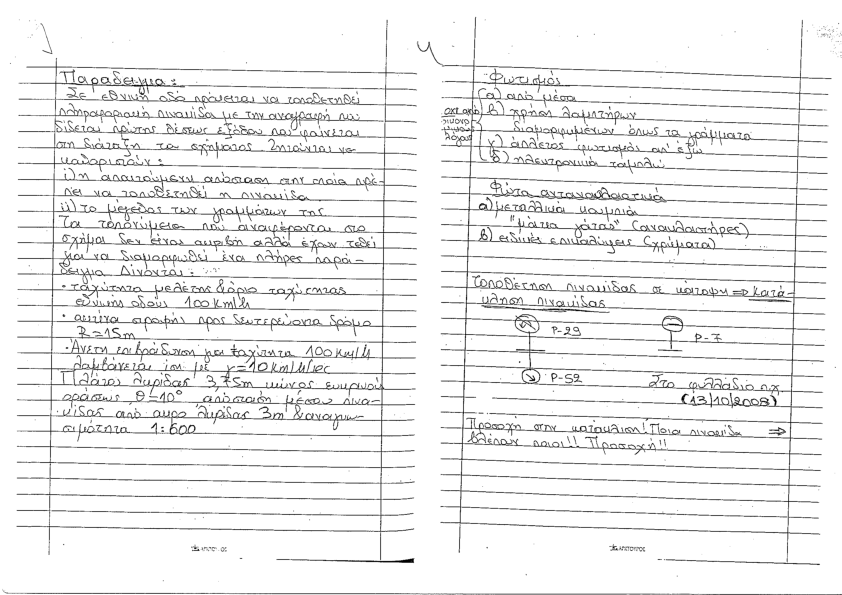 Παράδειγμα:
Σε εθνική οδό πρόκειται να τοποθετηθεί
πληροφοριακή πινακίδα με την αναγραφή που
δίδεται πρώτης θέσεως εξόδου που φαίνεται
στη διάταξη του σχήματος. Ζητούνται να
καθοριστούν:
i) η απαιτούμενη απόσταση στην οποία πρέ-
πει να τοποθετηθεί η πινακίδα
ii) το μέγεθος των γραμμάτων της
Τα τοπωνύμεια που αναφέρονται στο
σχήμα δεν είναι ακριβή αλλά έχουν τεθεί
για να διαμορφωθεί ένα πλήρες παρά-
δειγμα Δίνονται:
• ταχύτητα μελέτης & όριο ταχύτητας
εθνικής οδούς 100 km/h
• ακτίνα στροφής προς δευτερεύοντα δρόμο
R=15m
• Άνετη επιβράδυνση για ταχύτητα 100 km/h
λαμβάνεται ίση με γ=10km/h/sec
Πλάτος λωρίδας 3,75m κώνος ευκρινούς
οράσεως θ=10° απόσταση μέσου πινα-
κίδας από άκρο λωρίδας 3m & αναγνω-
σιμότητα 1:600
Φωτισμός
α) από μέσα
οχι από β) χρήση λαμπτήρων
διαμορφωμένων όπως τα γράμματα
λόγους γ) άπλετος φωτισμός απ' έξω
δ) ηλεκτρονικά ταμπλώ
Φώτα αντανακλαστικά
α) μεταλλικά κουμπιά
"μάτια γάτας" (ανακλαστήρες)
β) ειδικές επικαλύψεις (χρώματα)
Τοποθέτηση πινακίδας σε κάτοψη ⇒ Κατά-
κλιση πινακίδας
P-29
P-7
P-52
Στο φυλλάδιο π.χ.
(13/10/2008)
Προσοχή στην κατάκλιση! Ποια πινακίδα ⇒
βλέπουν ποιοι!! Προσοχή!!